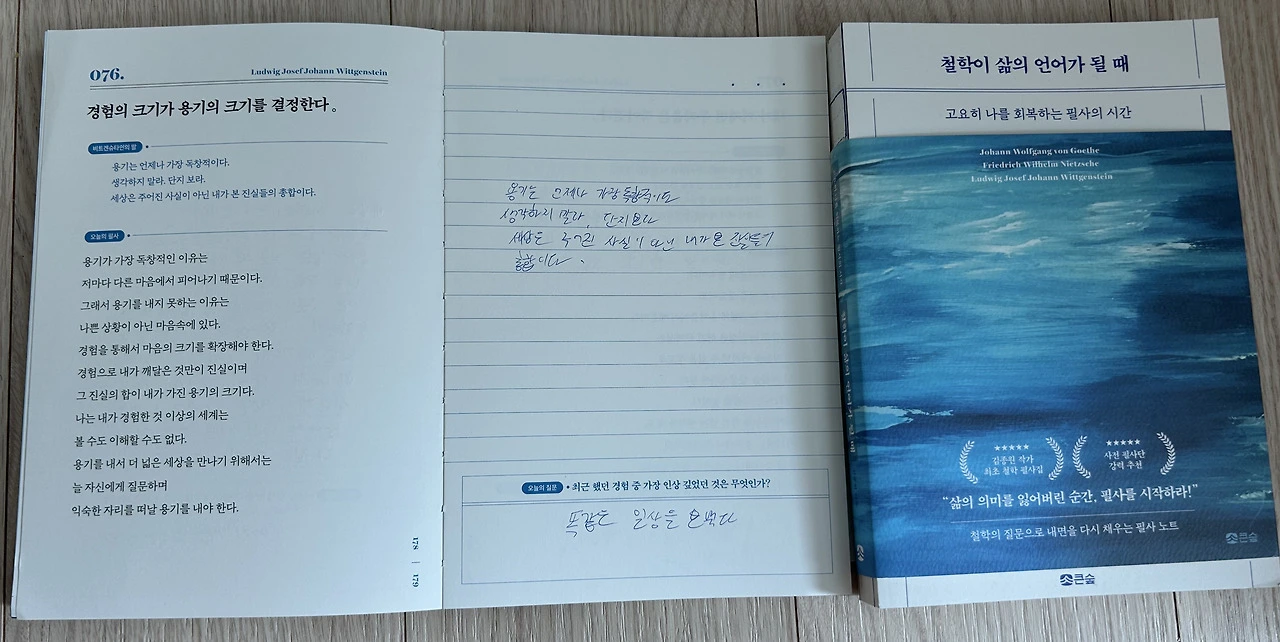 076.
Ludwig Josef Johann Wittgenstein
경험의 크기가 용기의 크기를 결정한다.
비트겐슈타인의 말
용기는 언제나 가장 독창적이다.
생각하지 말라. 단지 보라.
세상은 주어진 사실이 아닌 내가 본 진실들의 총합이다.
오늘의 필사
용기가 가장 독창적인 이유는
저마다 다른 마음에서 피어나기 때문이다.
그래서 용기를 내지 못하는 이유는
나쁜 상황이 아닌 마음속에 있다.
경험을 통해서 마음의 크기를 확장해야 한다.
경험으로 내가 깨달은 것만이 진실이며
그 진실의 합이 내가 가진 용기의 크기다.
나는 내가 경험한 것 이상의 세계는
볼 수도 이해할 수도 없다.
용기를 내서 더 넓은 세상을 만나기 위해서는
늘 자신에게 질문하며
익숙한 자리를 떠날 용기를 내야 한다.
178 | 179
용기는 언제나 가장 독창적이다
생각하지 말라 단지
세상은 사실이 아닌 내가 본
총합이다.
오늘의 질문
최근 했던 경험 중 가장 인상 깊었던 것은 무엇인가?
똑같은 일상을
철학이 삶의 언어가 될 때
고요히 나를 회복하는 필사의 시간
Johann Wolfgang von Goethe
Friedrich Wilhelm Nietzsche
Ludwig Josef Johann Wittgenstein
★★★★★
김종원 작가
최초 철학 필사집
★★★★★
사전 필사단
강력 추천
“삶의 의미를 잃어버린 순간, 필사를 시작하라!”
철학의 질문으로 내면을 다시 채우는 필사 노트
큰숲
큰숲
철학이 삶의 언어가 될 때